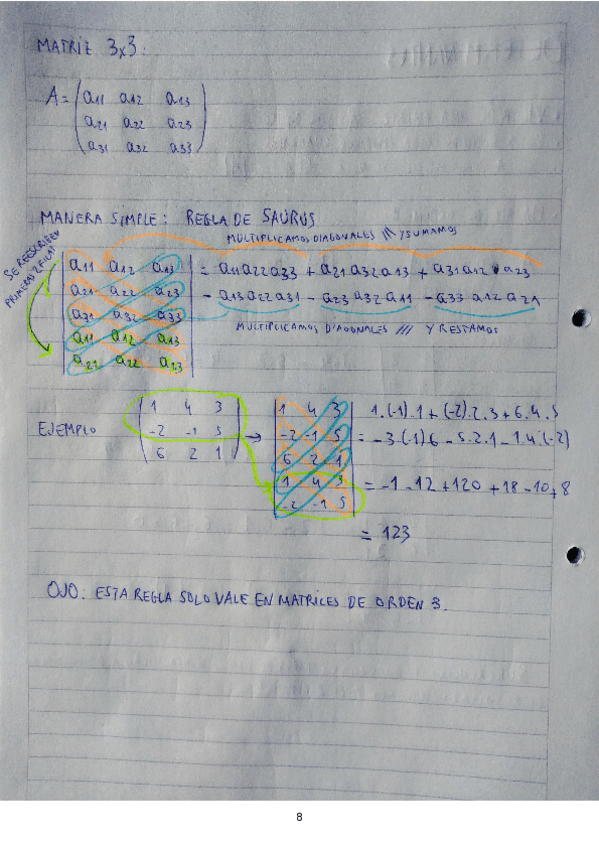 MATRIZ 3x3:
A = (a11 a12 a13
a21 a22 a23
a31 a32 a33)
MANERA SIMPLE: REGLA DE SAURUS
MULTIPLICAMOS DIAGONALES \\\ Y SUMAMOS
SE REESCRIBEN
PRIMERAS 2 FILAS
|a11 a12 a13| = a11a22a33 + a21a32a13 + a31a12·a23
a21 a22 a23 - a13a22a31 - a23a32a11 - a33a12a21
a31 a32 a33
MULTIPLICAMOS DIAGONALES /// Y RESTAMOS
a11 a12 a13
a22 a22 a23
EJEMPLO
|1 4 3
-2 -1 5
6 2 1| →
|1 4 3 1.(-1).1+(-2).2.3+6.4.5
-2 -1 5 = -3(-1)6-5.2.1-1.4.(-2)
6 2 1
1 4 3 = -1-12+120+18-10+8
-2 -1 5
= 123
OJO: ESTA REGLA SOLO VALE EN MATRICES DE ORDEN 3.
8